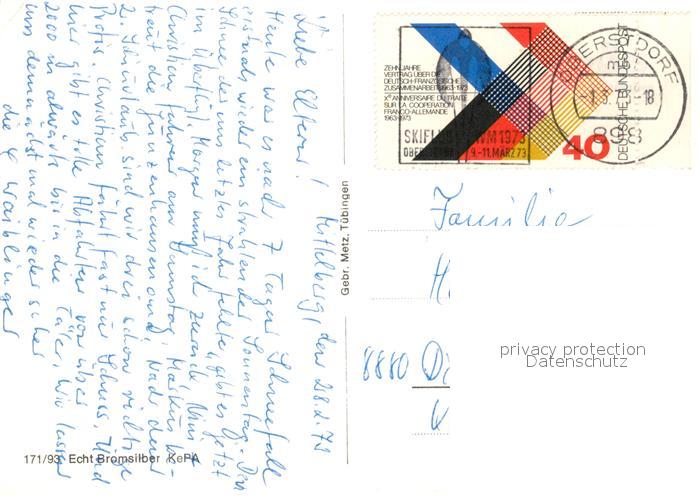 Mittelberg, den 28.2.73
Liebe Eltern!
Heute war nach 7 Tagen Schneefall
erstmals wieder ein strahlender Sonnentag. Den
Schnee, der uns letztes Jahr fehlte, gibt es jetzt
im Überfluß. Margret und ich
Christian fahren am Samstag, Markus be-
treut die
2. Skiurlaub sind wir drei schon richtige
Profis. Christian fährt fast nur Schuss. Und
hier gibt es tolle Abfahrten von über
2000 m abwärts bis in die Täler. Wir lassen
uns demnächst mal wieder sehen
die 4 Waiblinger
171/93 Echt Bromsilber KePA
Gebr. Metz, Tübingen
ZEHN JAHRE
VERTRAG ÜBER DIE
DEUTSCH-FRANZÖSISCHE
ZUSAMMENARBEIT 1963-1973
Xe ANNIVERSAIRE DU TRAITE
SUR LA COOPERATION
FRANCO-ALLEMANDE
1963-1973
SKIFLUG-WM 1973
OBERSTDORF 9.-11.MÄRZ 73
40
DEUTSCHE BUNDESPOST
OBERSTDORF
-1.3.73-18
898
Familie
H
8880 Di
privacy protection
Datenschutz